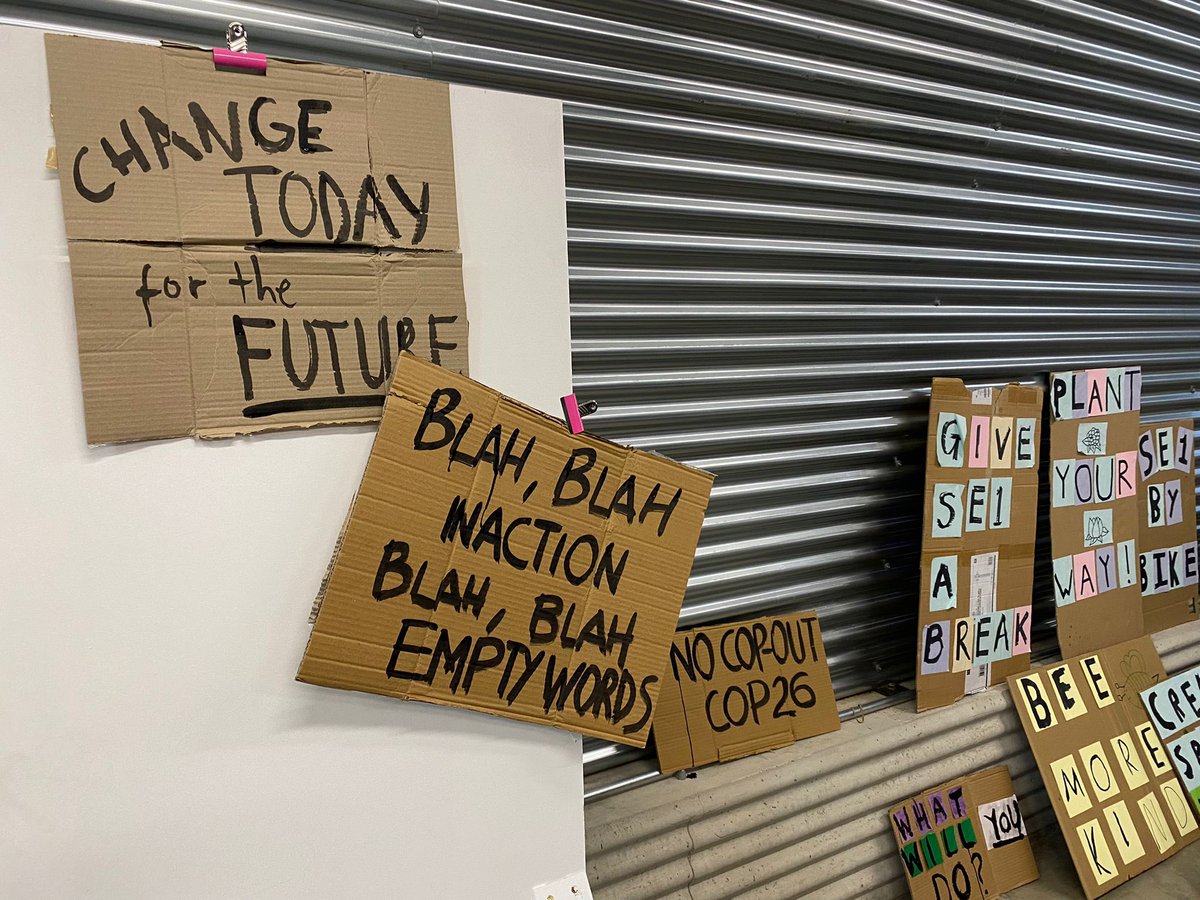 CHANGE
TODAY
for the
FUTURE
BLAH, BLAH
INACTION
BLAH, BLAH
EMPTY WORDS
NO COP-OUT
COP26
GIVE
SE1
A
BREAK
PLANT
YOUR
WAY!
SE1
BY
BIKE
BEE
MORE
KIND
WHAT YOU
WILL
DO?